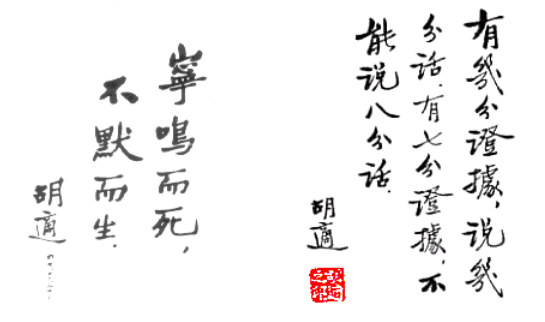 有幾分證據，说幾
分话．有七分證據．不
能说八分话．
胡適
寧鳴而死，
不默而生．
胡適